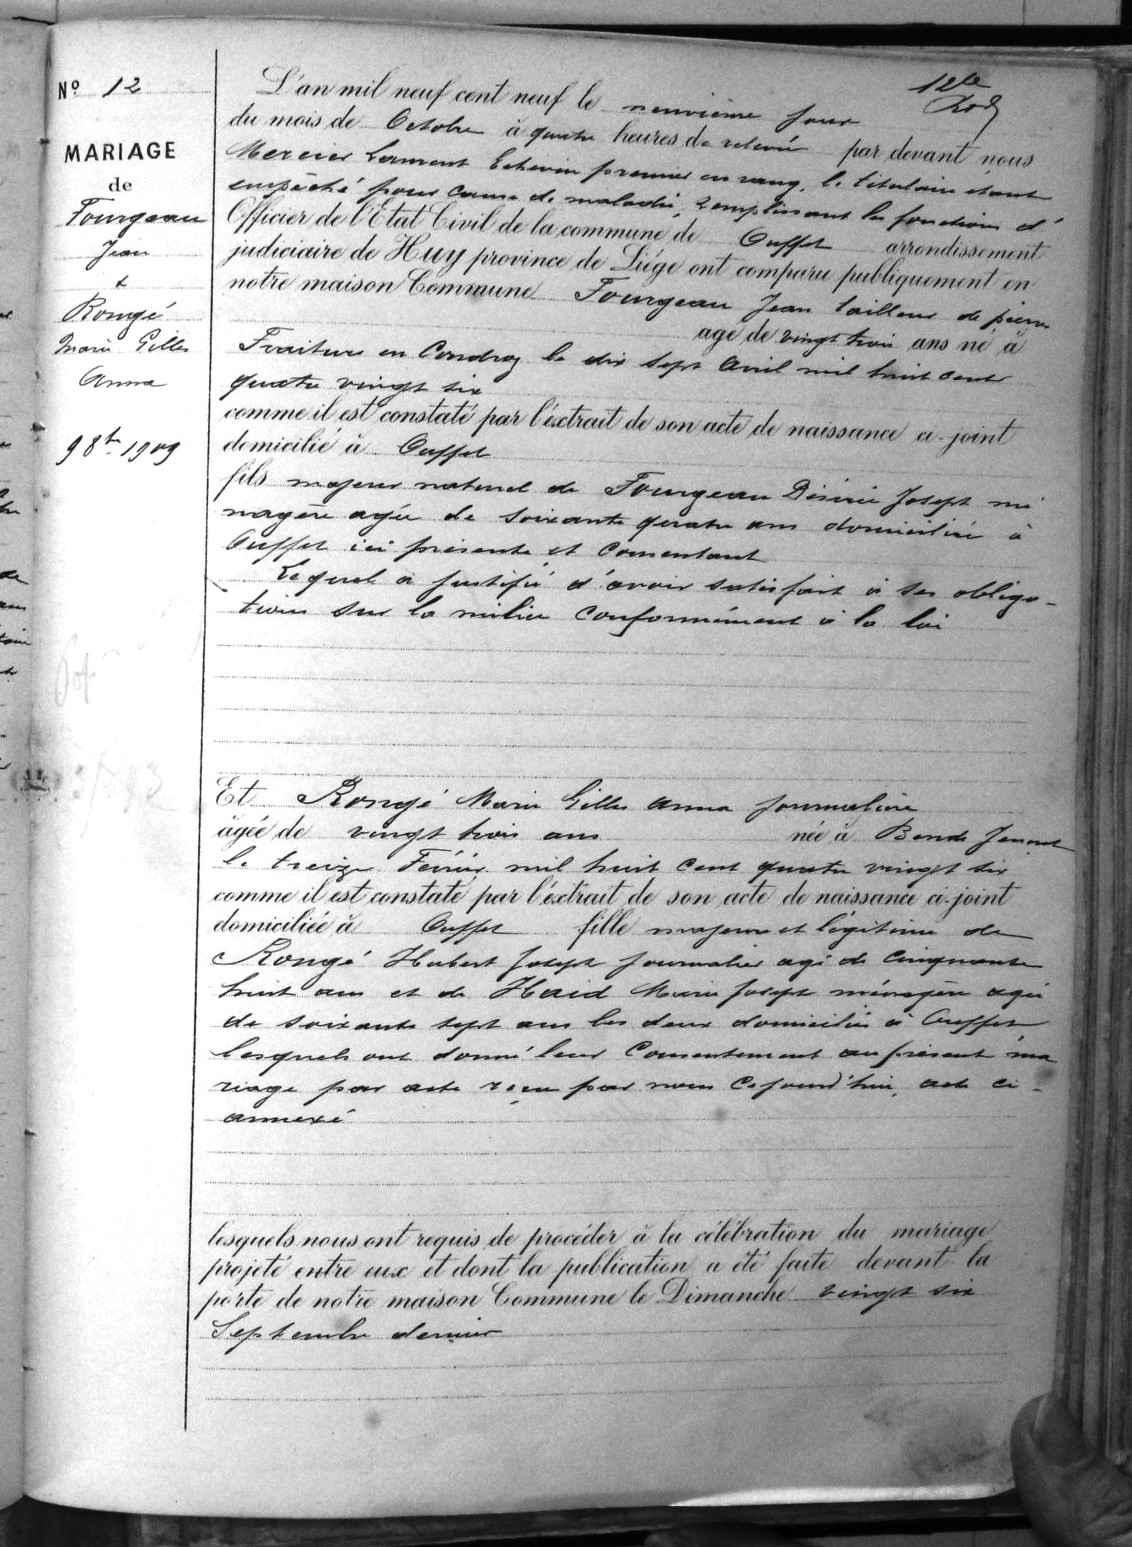 Nº 12
MARIAGE
de
Fourgeau
Jean
&
Rongé
Marie Gilles
Anna
9 8bre 1909
12te
L'an mil neuf cent neuf le neuvième jour
du mois de Octobre à quatre heures de relevée par devant nous
Mercier Laurent Echevin premier en rang, le titulaire étant
empêché pour cause de maladie, remplissant les fonctions d'
Officier de l'Etat Civil de la commune de Ouffet arrondissement
judiciaire de Huy province de Liége ont comparu publiquement en
notre maison Commune Fourgeau Jean tailleur de pierre
agé de vingt trois ans né à
Fraiture en Condroz le dix sept avril mil huit cent
quatre vingt six
comme il est constaté par l'extrait de son acte de naissance ci-joint
domicilié à Ouffet
fils majeur naturel de Fourgeau Désirée Joseph mé
nagère agée de soixante quatre ans domiciliée à
Ouffet ici présente et consentant
Lequel a justifié d'avoir satisfait à ses obliga-
tions sur la milice conformément à la loi
Et Rongé Marie Gilles Anna journalière
âgée de vingt trois ans née à Bende Jenneret
le treize Février mil huit cent quatre vingt six
comme il est constaté par l'extrait de son acte de naissance ci-joint
domiciliée à Ouffet fille majeure et légitime de
Rongé Hubert Joseph journalier agé de cinquante
huit ans et de Haid Marie Joseph ménagère agée
de soixante sept ans les deux domiciliés à Ouffet
lesquels ont donné leur Consentement au présent ma
riage par acte reçu par nous Cejourd'hui, acte ci-
annexé
lesquels nous ont requis de procéder à la célébration du mariage
projeté entre eux et dont la publication a été faite devant la
porte de notre maison Commune le Dimanche vingt six
Septembre dernier